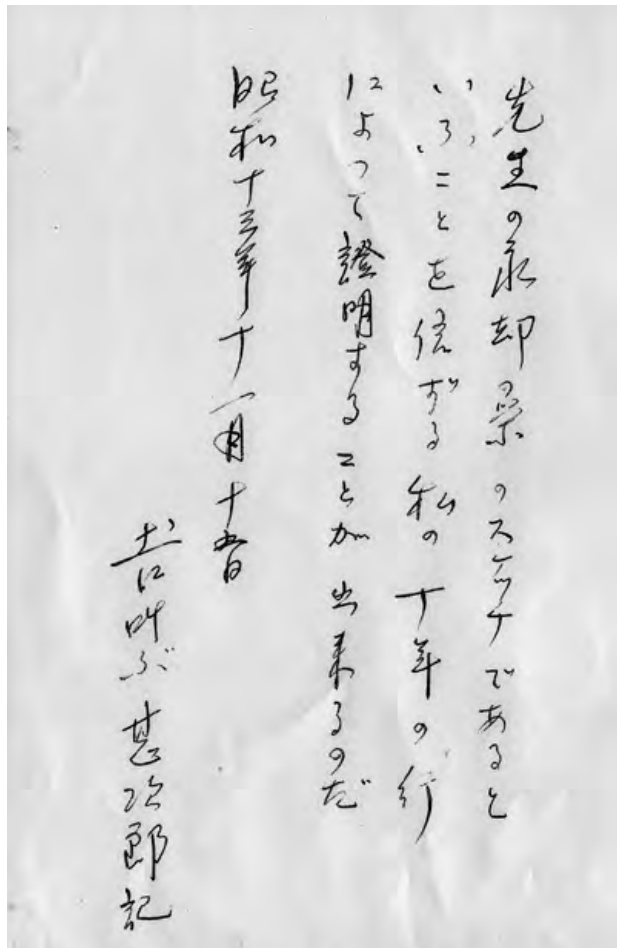 先生の永却景のスケッチであると
いふことを信ずる私の十年の行
によつて證明することが出来るのだ
昭和十三年十一月十五日
土に叫ぶ 甚次郎記